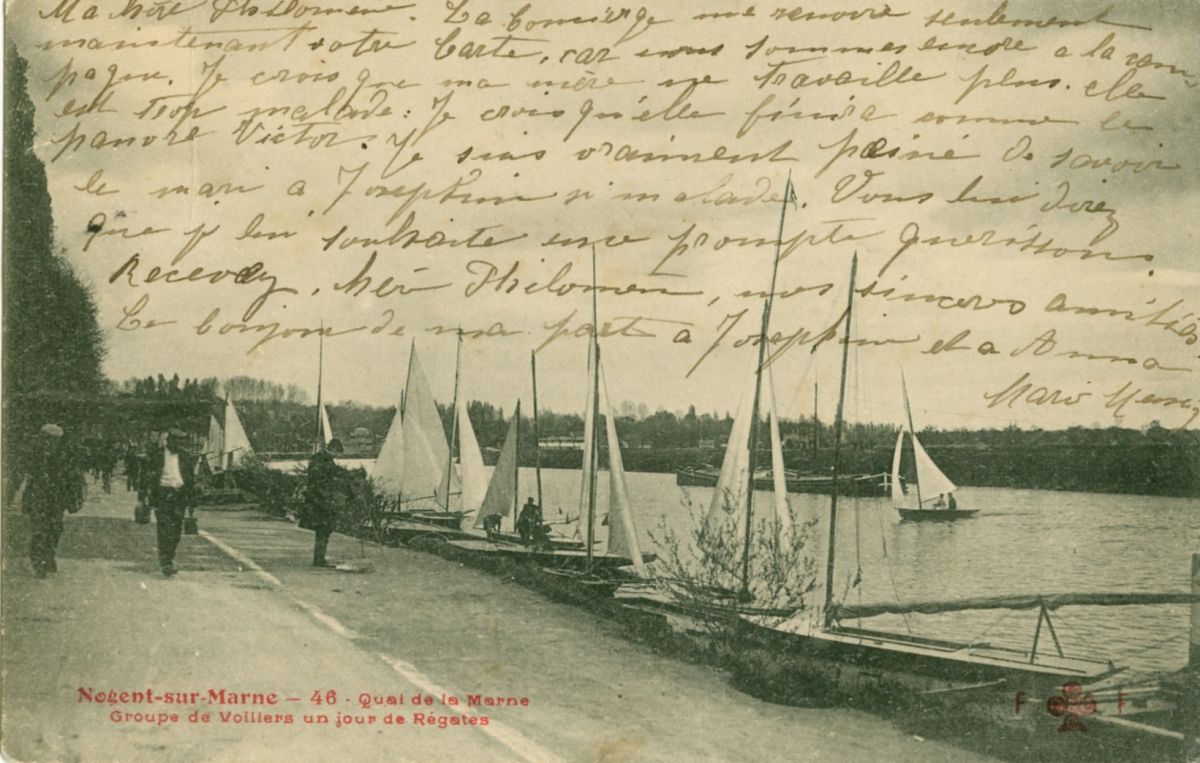 Ma Mére Philomene. La Concierge me renvoie seulement
maintenant votre Carte, car nous sommes encore a la cam
pagne. Je crois que ma mère ne travaille plus. elle
est trop malade. Je crois qu'elle finira comme le
pauvre Victor. Je suis vraiment peiné de savoir
le mari a Josephine si malade. Vous lui direz
que je lui souhaite une prompte guerisson.
Recevez, Mére Philomene, nos sincères amitiés
Le bonjour de ma part a Josephine et a Anna
Nogent-sur-Marne - 46 - Quai de la Marne
Groupe de Voiliers un jour de Régates
F F